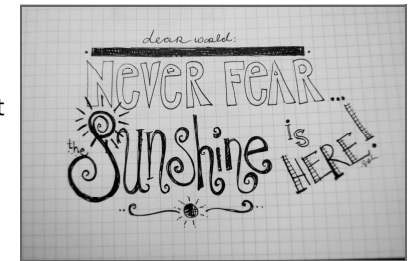 dear world:
NEVER FEAR...
the Sunshine is HERE!